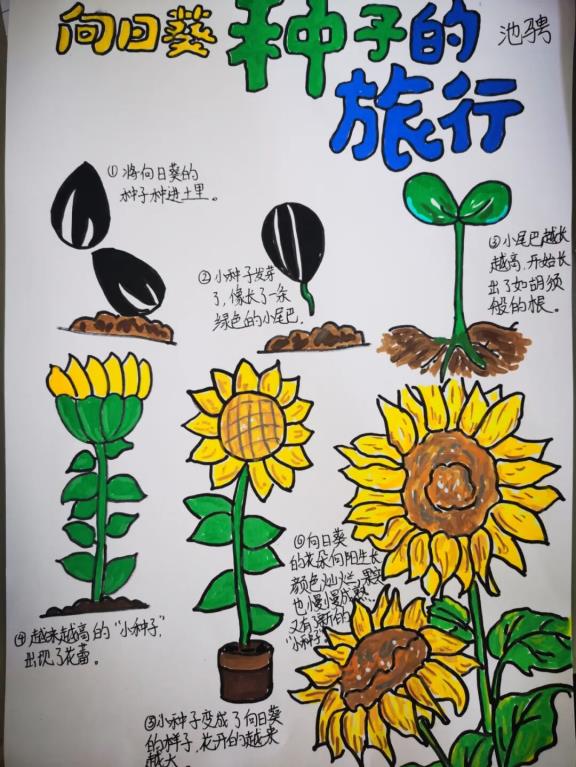 向日葵种子的
旅行
池骋
①将向日葵的
种子种进土里。
②小种子发芽
了,像长了一条
绿色的小尾巴.
③小尾巴越长
越高,开始长
出了如胡须
般的根。
④越来越高的“小种子”,
出现了花蕾。
⑤小种子变成了向日葵
的样子,花开的越来
越大。
⑥向日葵
的花朵向阳生长
颜色灿烂,果实
也慢慢成熟.
又有新的
“小种子”